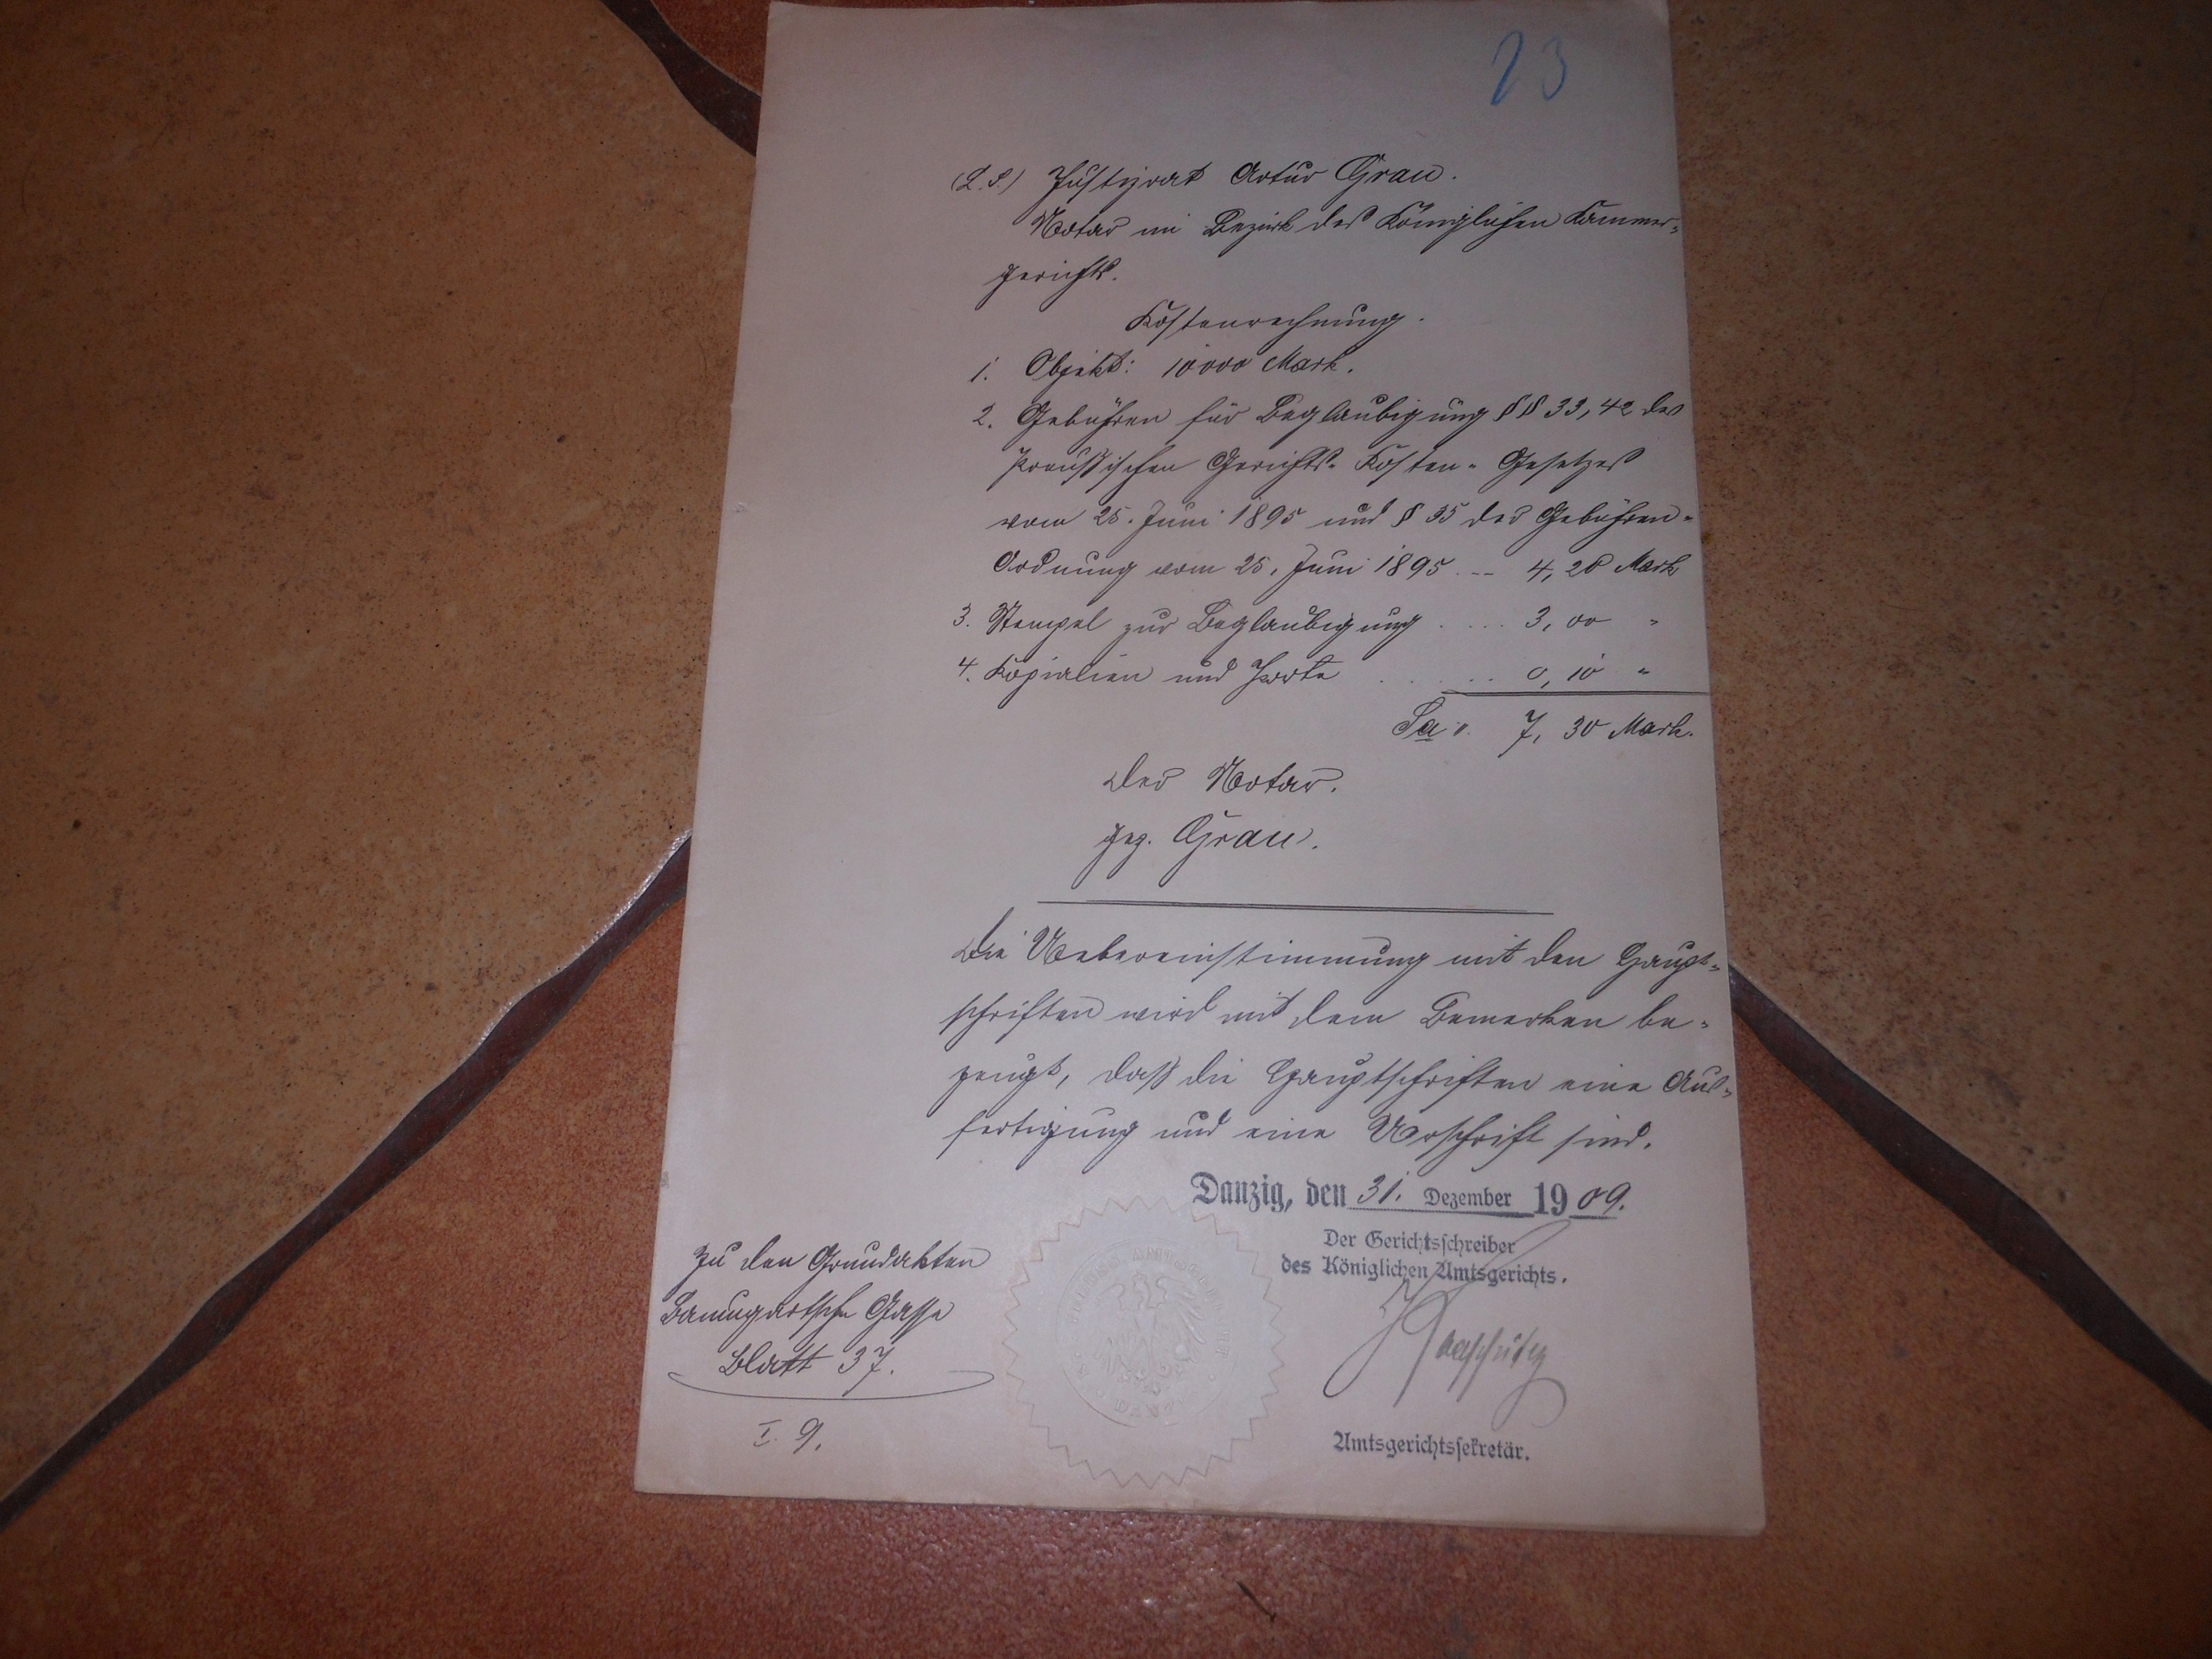 23
(L. S.) Justizrat Artur Grau.
Notar im Bezirk des Königlichen Kammer-
gerichts.
Kostenrechnung.
1. Objekt: 10000 Mark.
2. Gebühren für Beglaubigung §§ 33, 42 des
Preußischen Gerichts-Kosten-Gesetzes
vom 25. Juni 1895 und § 35 der Gebühren-
Ordnung vom 25. Juni 1895 .-- 4,20 Mark
3. Stempel zur Beglaubigung .... 3,00 "
4. Kopialien und Porto ..... 0,10 "
Sa.: 7,30 Mark.
Der Notar.
gez. Grau.
Die Uebereinstimmung mit den Haupt-
schriften wird mit dem Bemerken be-
zeugt, daß die Hauptschriften eine Aus-
fertigung und eine Urschrift sind.
Danzig, den 31. Dezember 1909.
Der Gerichtsschreiber
des Königlichen Amtsgerichts.
Amtsgerichtssekretär.
Zu den Grundakten
Baumgartsche Gasse
Blatt 37.
I. 9.